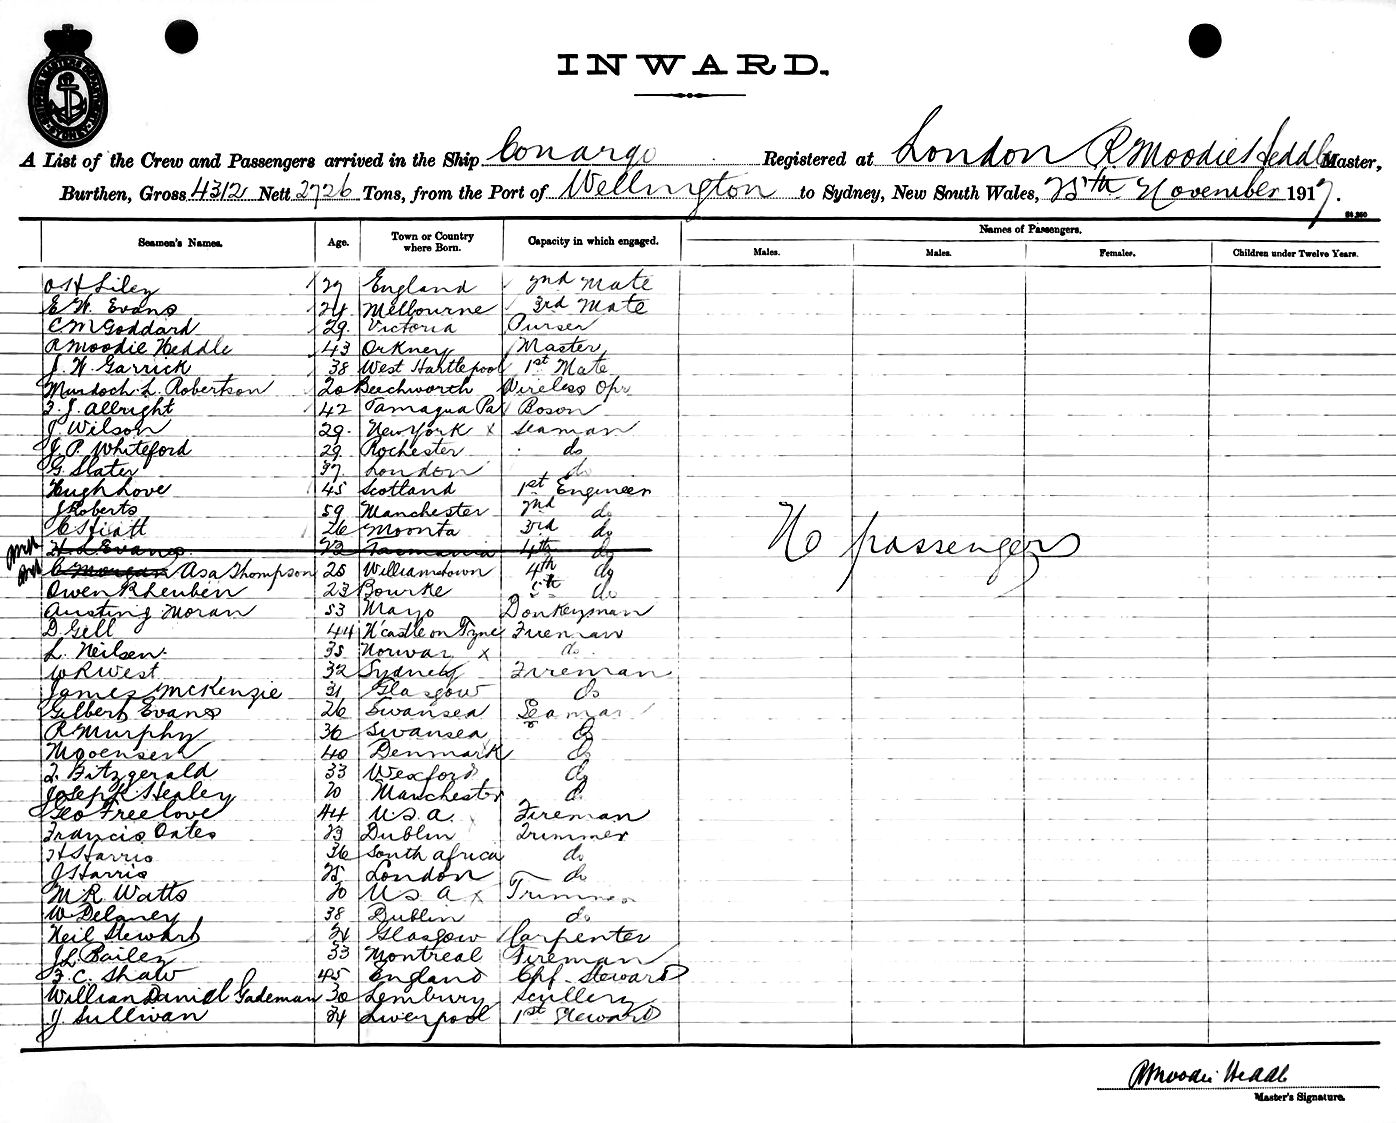 INWARD.
A List of the Crew and Passengers arrived in the Ship Conargo Registered at London R Moodie Heddle Master,
Burthen, Gross 4312 Nett 2726 Tons, from the Port of Wellington to Sydney, New South Wales, 25th November 1917.
Seamen's Names. Age. Town or Country where Born. Capacity in which engaged. Names of Passengers.
Males. Males. Females. Children under Twelve Years.
England 2nd Mate
E. W. Evans 24 Melbourne 3rd Mate
C M Goddard 29 Victoria Purser
R Moodie Heddle 43 Orkney Master
J. W. Garrick 38 West Hartlepool 1st Mate
Murdoch L. Robertson 20 Beechworth Wireless Opr
F. J. Allright 42 Tamaqua Pa Boson
J. Wilson 29. New York x Seaman
J. P. Whiteford 29 Rochester do
G. Slater 37. London do
Hugh Love 45 Scotland 1st Engineer
J Roberts 59 Manchester 2nd do
C Hiatt 26 Moonta 3rd do
H. L Evans 23 Tasmania 4th do
C Morgan Asa Thompson 25 Williamstown 4th do
Owen Rheuben 23 Bourke 5th do
Austing Moran 53 Mayo Donkeyman
D. Gell 44 N'castle on Tyne Fireman
L. Neilsen. 35 Norway x do.
W R West 32 Sydney Fireman
James McKenzie 31 Glasgow do
Gilbert Evans 26 Swansea Seaman
R Murphy 36 Swansea do
40 Denmark do
T. Fitzgerald 33 Wexford do
Joseph Healey 20 Manchester do
Geo Freelove 44 U.S.A. Fireman
Francis Oates 23 Dublin Trimmer
H Harris 36 South Africa do
J Harris 25 London do
M R Watts 20 U S A x Trimmer
W Delaney 38 Dublin do
Neil Stewart 24 Glasgow Carpenter
J L Bailey 33 Montreal Fireman
F. C. Shaw 45 England Chf. Steward
William Daniel Gademan 30 Lembury Scullery
J. Sullivan 24 Liverpool 1st Steward
No passengers
R Moodie Heddle
Master's Signature.